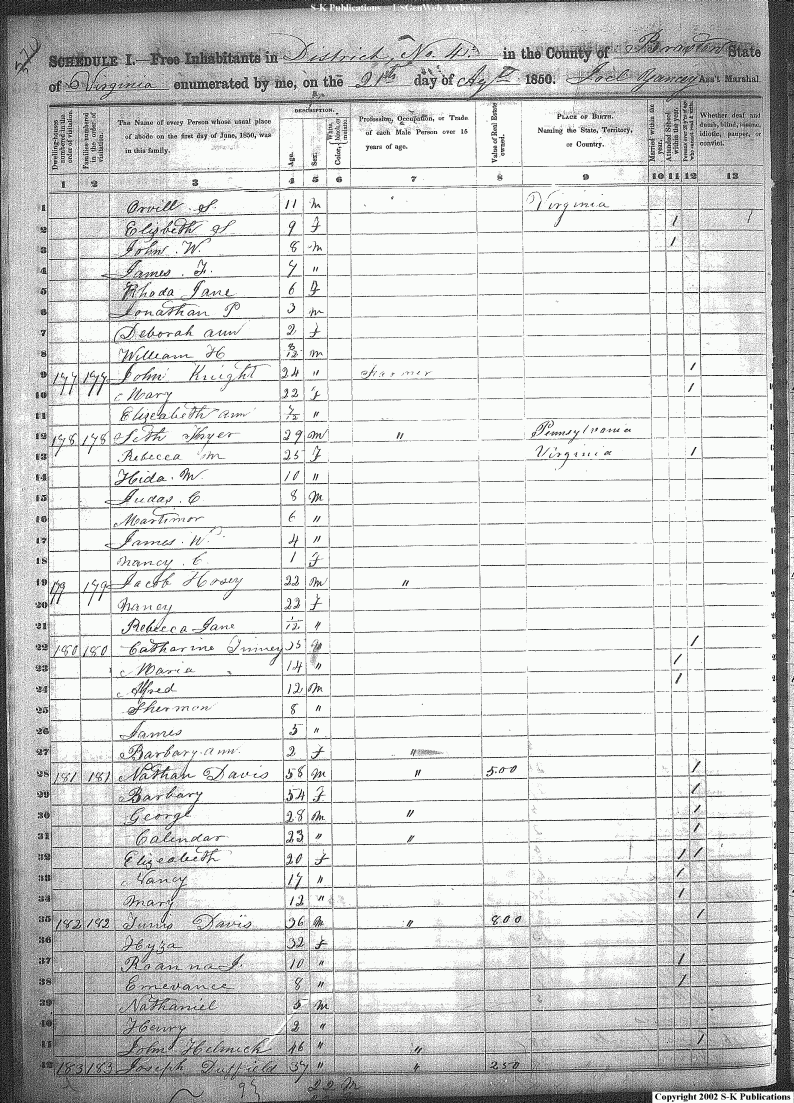 S-K Publications - USGenWeb Archives
SCHEDULE I.—Free Inhabitants in District No. 4 in the County of Braxton State
of Virginia enumerated by me, on the 21th day of Agt 1850. Joel Yancey Ass't Marshal
Dwelling-houses numbered in the order of visitation.
Families numbered in the order of visitation.
The Name of every Person whose usual place of abode on the first day of June, 1850, was in this family.
DESCRIPTION.
Age.
Sex.
Color, White, black, or mulatto.
Profession, Occupation, or Trade of each Male Person over 15 years of age.
Value of Real Estate owned.
PLACE OF BIRTH. Naming the State, Territory, or Country.
Married within the year.
Attended School within the year.
Whether deaf and dumb, blind, insane, idiotic, pauper, or convict.
1 2 3 4 5 6 7 8 9 10 11 12 13
1 Orvill S. 11 m Virginia
2 Elizbeth S 9 f 1 1
3 John W. 8 m 1
4 James F. 7 "
5 Rhoda Jane 6 f
6 Jonathan P 3 m
7 Deborah ann 2 f
8 William H 8/12 m
9 177 177 John Knight 24 " Farmer 1
10 Mary 22 f 1
11 Elizeabeth ann "
12 178 178 Seth 29 m " Pennsylvania
13 Rebecca m 25 f Virginia 1
14 Hida M. 10 "
15 Judas C 8 m
16 Martimor 6 "
17 James W. 4 "
18 Nancy C. 1 f
19 179 179 Jacob Hosey 22 m "
20 Nancy 22 f
21 Rebecca Jane "
22 180 180 Catharine 35 " 1
23 Maria 14 " 1
24 Alfred 12 m 1
25 Shermon 8 "
26 James 5 "
27 Barbary ann 2 f "
28 181 181 Nathan Davis 58 m " 500 1
29 Barbary 54 f 1
30 George 28 m " 1
31 Calendar 23 " " 1
32 Elizeabeth 20 f 1 1
33 Nancy 17 " 1
34 Mary 12 " 1
35 182 182 Tunis Davis 36 m " 800 1
36 Hyza 32 f
37 Roanna J. 10 " 1
38 Emevance 8 " 1
39 Nathaniel 5 m
40 Henry 2 "
41 John Helmick 46 " " 1
42 183 183 Joseph Duffield 37 " " 250
22 M
Copyright 2002 S-K Publications